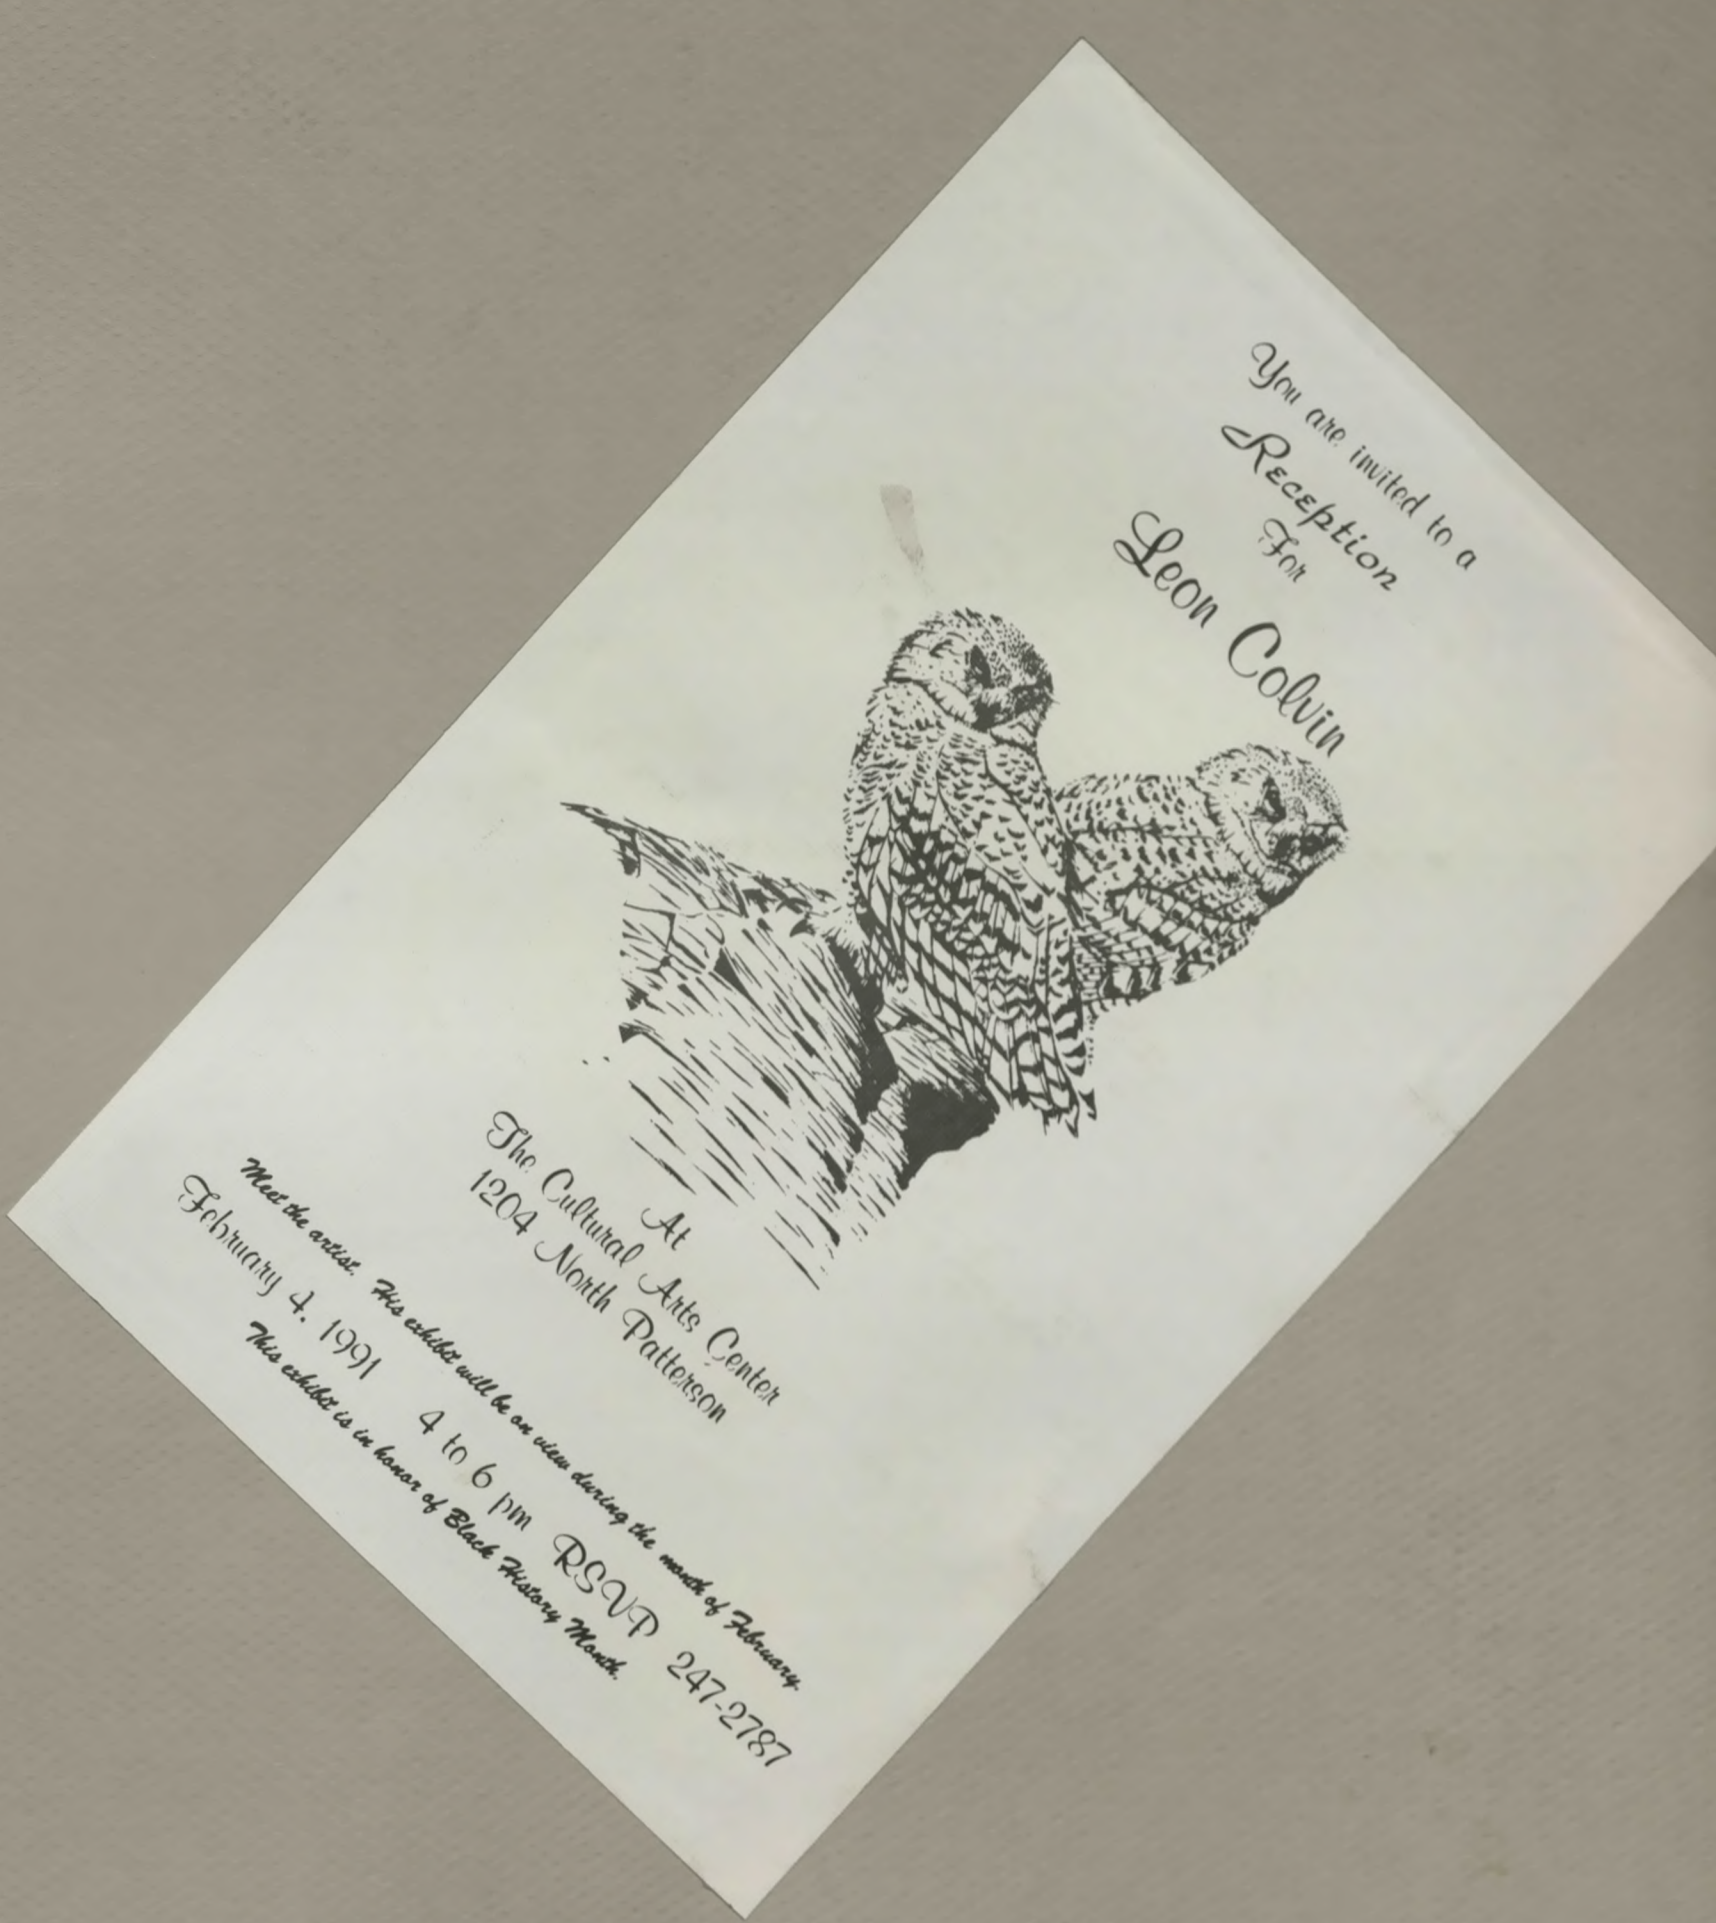 You are invited to a
Reception
For
Leon Colvin
At
The Cultural Arts Center
1204 North Patterson
Meet the artist. His exhibit will be on view during the month of February.
February 4, 1991 4 to 6 pm RSVP 247-2787
This exhibit is in honor of Black History Month.